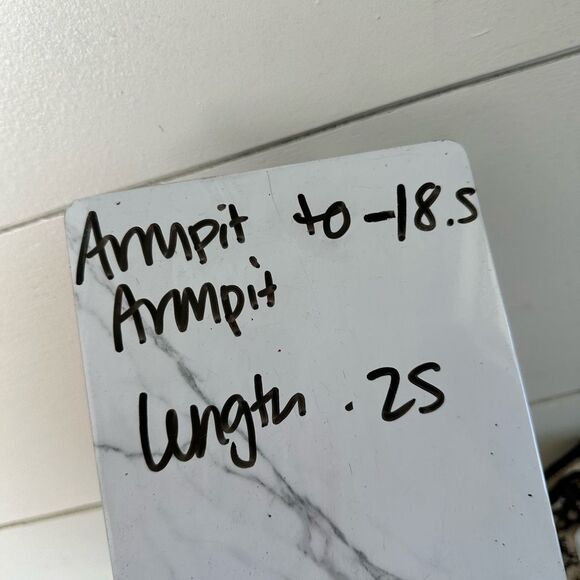 Armpit to -18.5
Armpit
length . 25